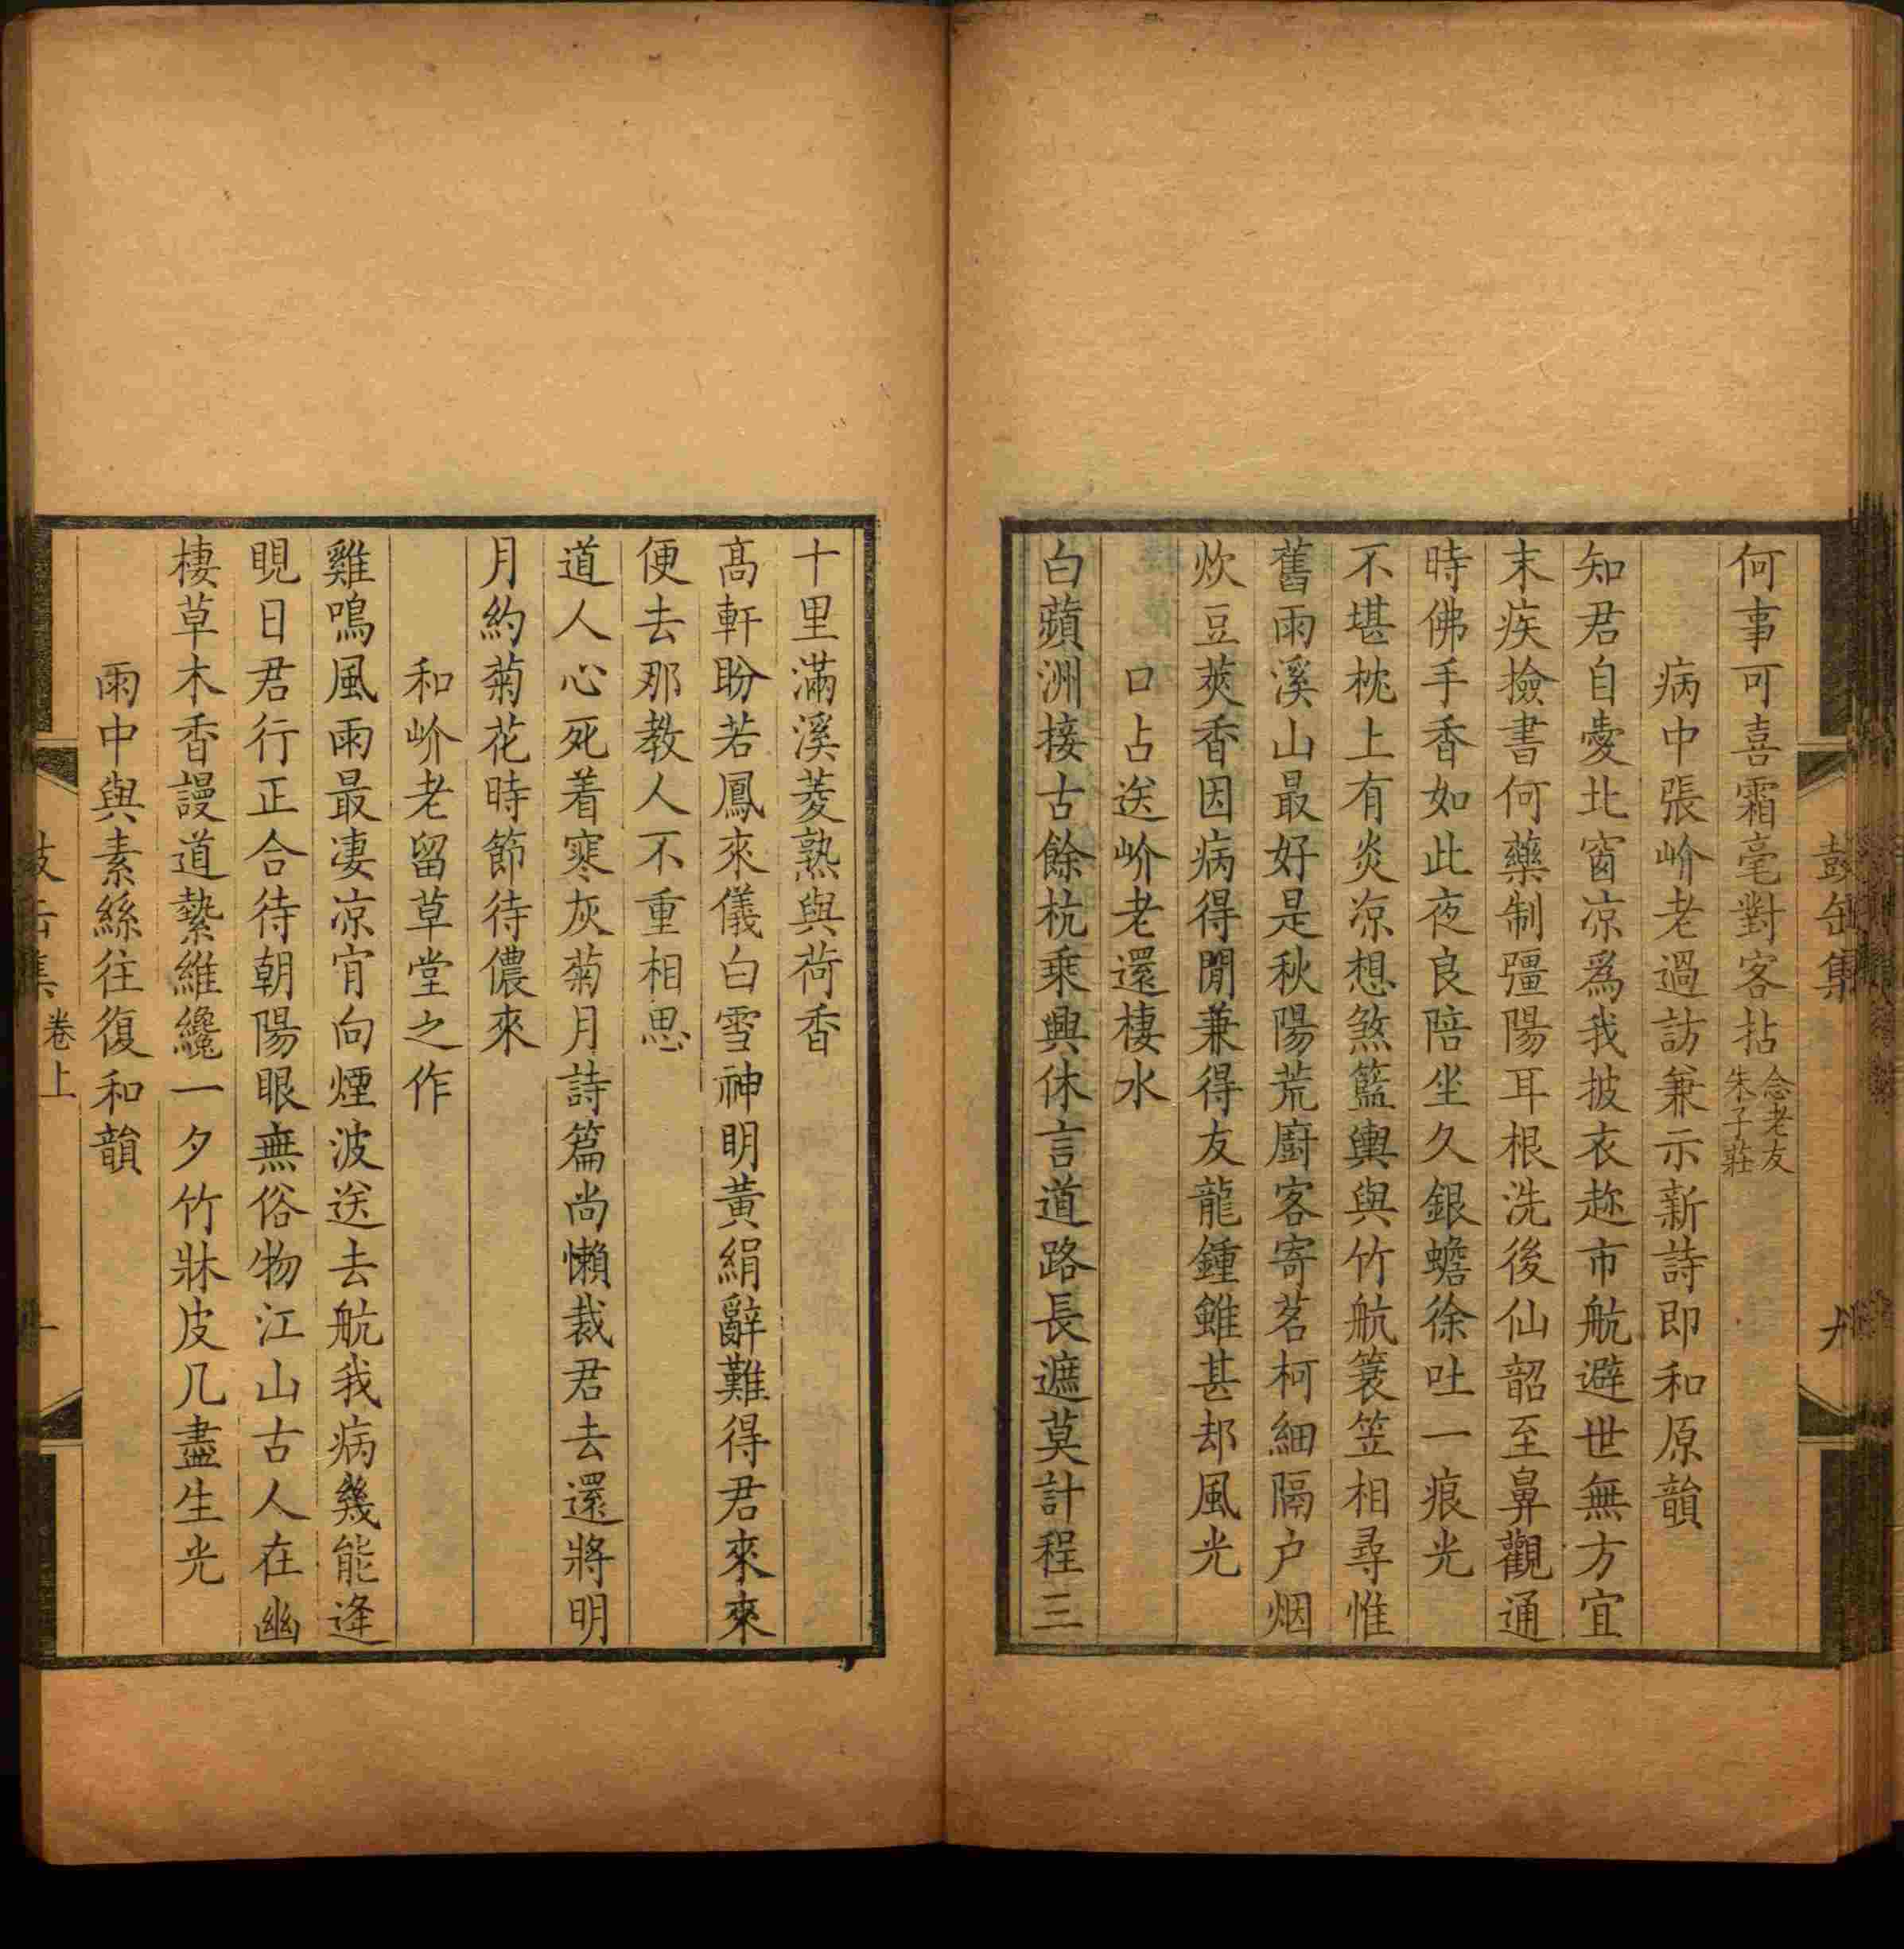 何事可喜霜毫對客拈念老友
朱子莊
病中張岕老過訪兼示新詩即和原韻
知君自愛北窗凉爲我披衣趂市航避世無方宜
末疾撿書何藥制彊陽耳根洗後仙韶至鼻觀通
時佛手香如此夜良陪坐久銀蟾徐吐一痕光
不堪枕上有炎凉想煞籃輿與竹航簑笠相尋惟
舊雨溪山最好是秋陽荒廚客寄茗柯細隔户烟
炊豆莢香因病得閒兼得友龍鍾雖甚却風光
口占送岕老還棲水
白蘋洲接古餘杭乗興休言道路長遮莫計程三
十里滿溪菱熟與荷香
髙軒盼若鳳來儀白雪神明黃絹辭難得君來來
便去那教人不重相思
道人心死着寒灰菊月詩篇尚懶裁君去還將明
月約菊花時節待儂來
和岕老留草堂之作
雞鳴風雨最凄凉宵向煙波送去航我病幾能逄
晛日君行正合待朝陽眼無俗物江山古人在幽
棲草木香謾道縶維纔一夕竹牀皮几盡生光
雨中與素絲往復和韻
卷上